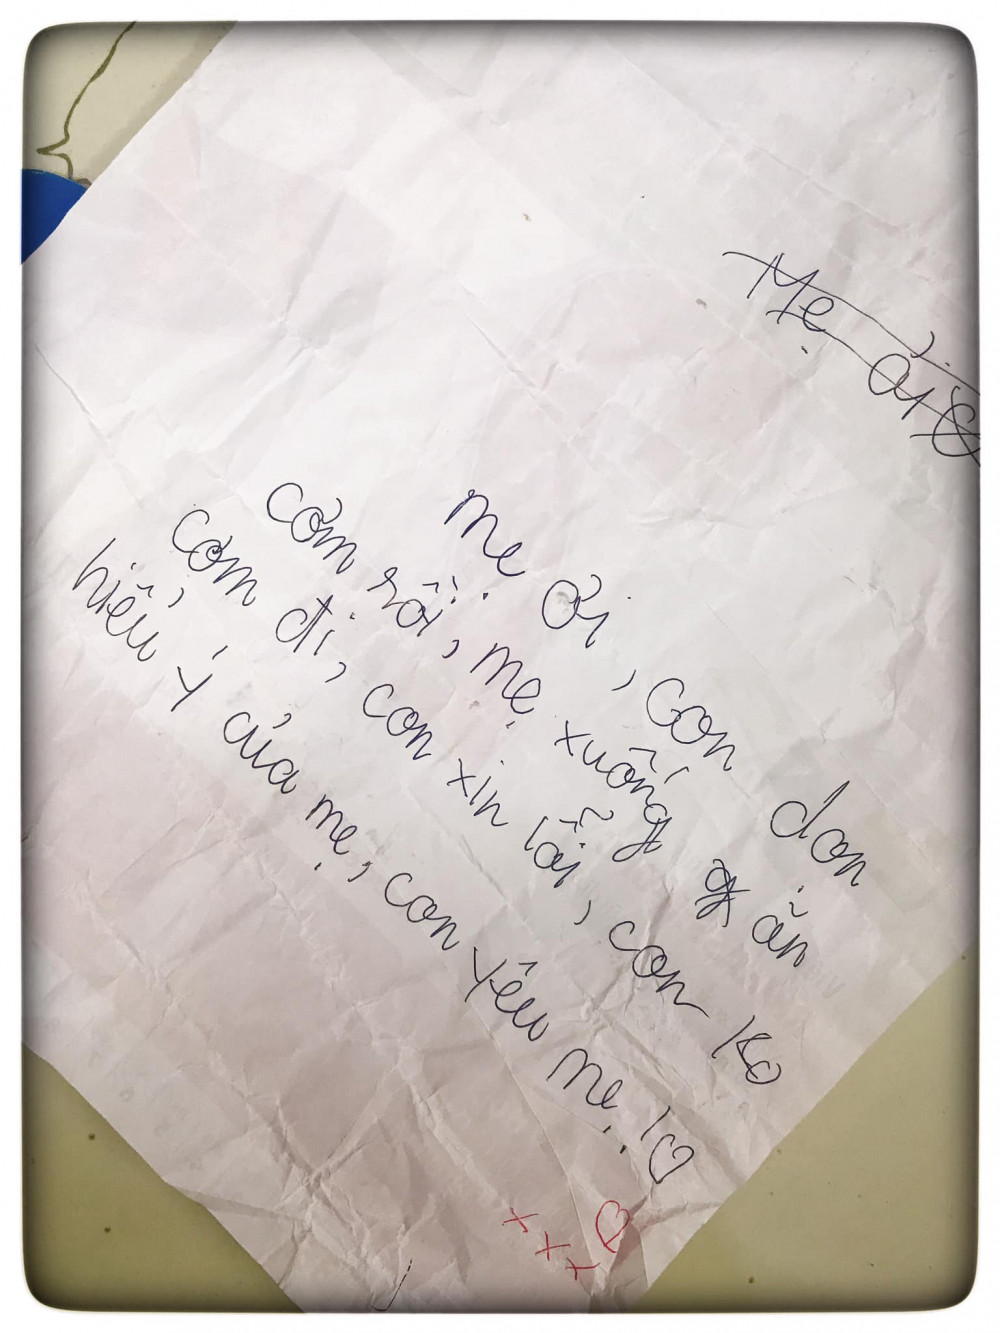 Mẹ ơi
Mẹ ơi, con dọn
cơm rồi, mẹ xuống ăn
cơm đi, con xin lỗi, con ko
hiểu ý của mẹ, con yêu mẹ! ♡
x x x ♡